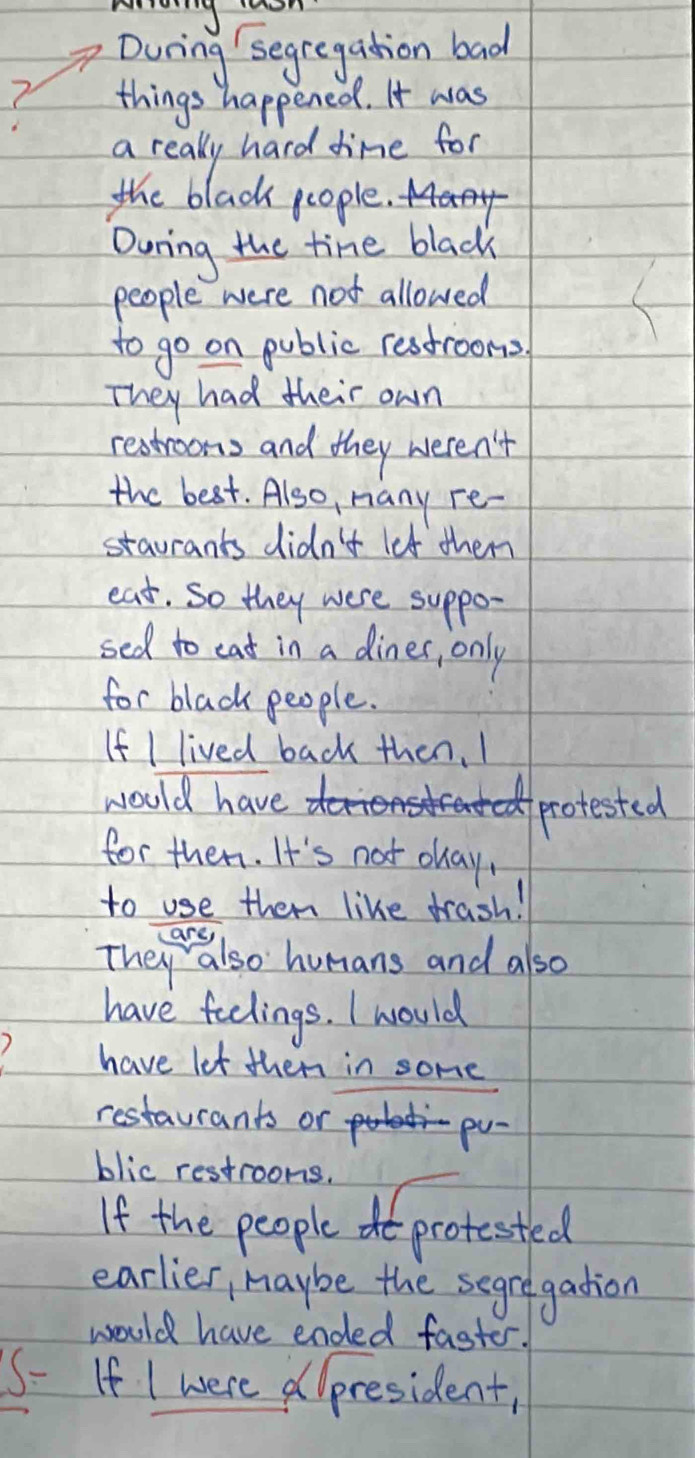 Writing Task:
During segregation bad
things happened. It was
a really hard time for
the black people. Many
During the time black
people were not allowed
to go on public restrooms.
They had their own
restrooms and they weren't
the best. Also, many re-
staurants didn't let them
eat. So they were suppo-
sed to eat in a diner, only
for black people.
If I lived back then, I
would have demonstrated protested
for them. It's not okay,
to use them like trash!
They (are) also humans and also
have feelings. I would
? have let them in some
restaurants or pu-
blic restrooms.
If the people de protested
earlier, maybe the segregation
would have ended faster.
S- If I were a president,